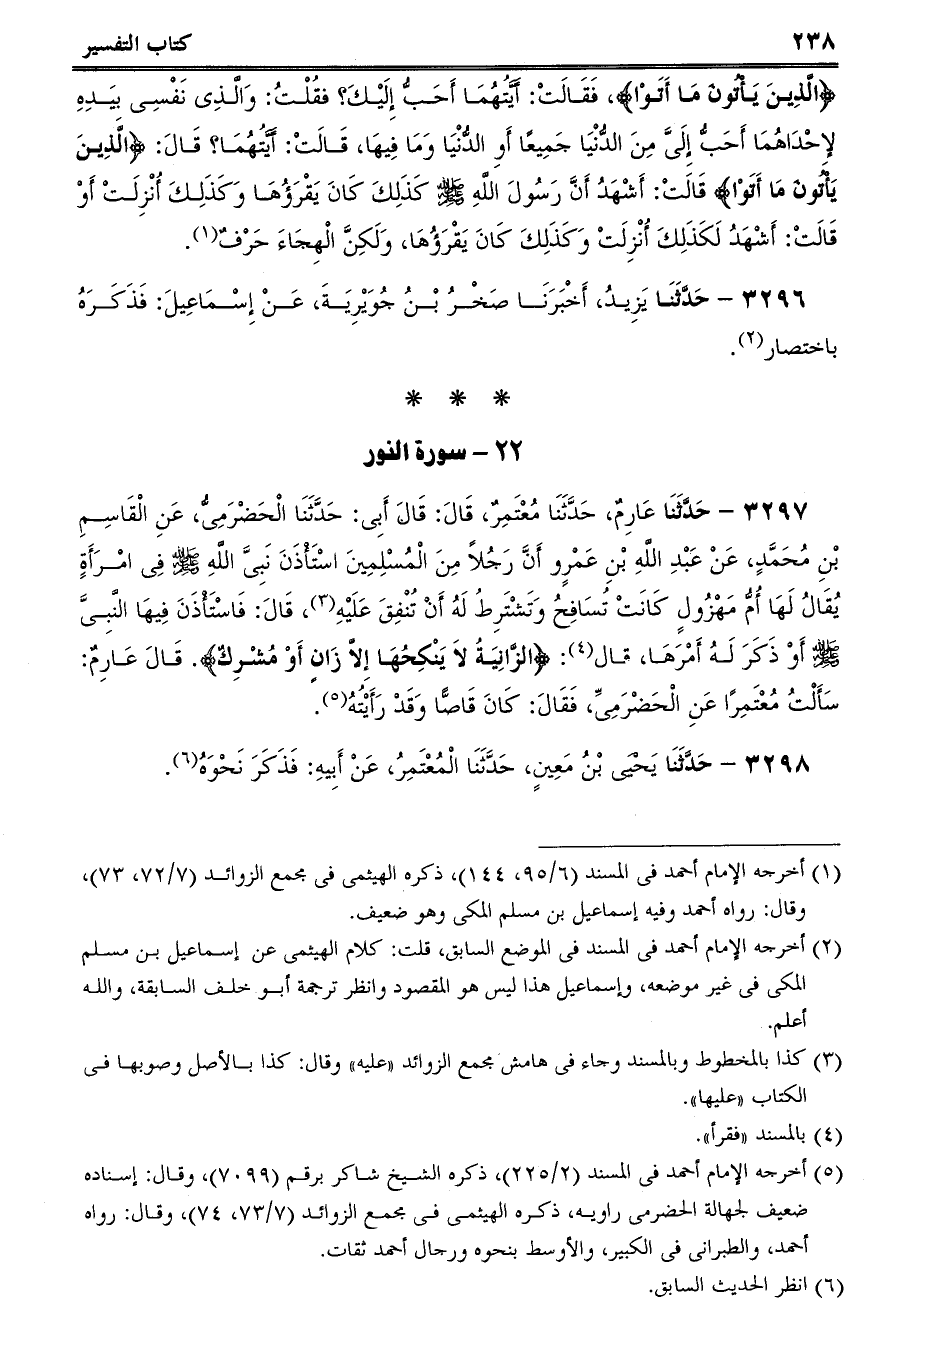 ٢٣٨ كتاب التفسير
﴿الَّذِينَ يَأْتُونَ مَا أَتَوْا﴾، فَقَالَتْ: أَيَّتُهُمَا أَحَبُّ إِلَيْكَ؟ فقُلْتُ: وَالَّذِى نَفْسِى بِيَدِهِ
لإِحْدَاهُمَا أَحَبُّ إِلَىَّ مِنَ الدُّنْيَا جَمِيعًا أَوِ الدُّنْيَا وَمَا فِيهَا، قَالَتْ: أَيَّتُهُمَا؟ قَالَ: ﴿الَّذِينَ
يَأْتُونَ مَا أَتَوْا﴾ قَالَتْ: أَشْهَدُ أَنَّ رَسُولَ اللَّهِ ﷺ كَذَلِكَ كَانَ يَقْرَؤُهَا وَكَذَلِكَ أُنْزِلَتْ أَوْ
قَالَتْ: أَشْهَدُ لَكَذَلِكَ أُنْزِلَتْ وَكَذَلِكَ كَانَ يَقْرَؤُهَا، وَلَكِنَّ الْهِجَاءَ حَرْفٌ(١).
٣٢٩٦ - حَدَّثَنَا يَزِيدُ، أَخْبَرَنَا صَخْرُ بْنُ جُوَيْرِيَةَ، عَنْ إِسْمَاعِيلَ: فَذَكَرَهُ
باختصار(٢).
* * *
٢٢ - سورة النور
٣٢٩٧ - حَدَّثَنَا عَارِمٌ، حَدَّثَنَا مُعْتَمِرٌ، قَالَ: قَالَ أَبِى: حَدَّثَنَا الْحَضْرَمِىُّ، عَنِ الْقَاسِمِ
بْنِ مُحَمَّدٍ، عَنْ عَبْدِ اللَّهِ بْنِ عَمْرٍو أَنَّ رَجُلاً مِنَ الْمُسْلِمِينَ اسْتَأْذَنَ نَبِىَّ اللَّهِ ﷺ فِى امْرَأَةٍ
يُقَالُ لَهَا أُمُّ مَهْزُولٍ كَانَتْ تُسَافِحُ وَتَشْتَرِطُ لَهُ أَنْ تُنْفِقَ عَلَيْهِ(٣)، قَالَ: فَاسْتَأْذَنَ فِيهَا النَّبِىَّ
ﷺ أَوْ ذَكَرَ لَهُ أَمْرَهَا، قال(٤): ﴿الزَّانِيَةُ لاَ يَنْكِحُهَا إِلاَّ زَانٍ أَوْ مُشْرِكٌ﴾. قَالَ عَارِمٌ:
سَأَلْتُ مُعْتَمِرًا عَنِ الْحَضْرَمِىِّ، فَقَالَ: كَانَ قَاصًّا وَقَدْ رَأَيْتُهُ(٥).
٣٢٩٨ - حَدَّثَنَا يَحْيَى بْنُ مَعِينٍ، حَدَّثَنَا الْمُعْتَمِرُ، عَنْ أَبِيهِ: فَذَكَرَ نَحْوَهُ(٦).
(١) أخرجه الإمام أحمد فى المسند (٩٥/٦، ١٤٤)، ذكره الهيثمى فى مجمع الزوائد (٧٢/٧، ٧٣)،
وقال: رواه أحمد وفيه إسماعيل بن مسلم المكى وهو ضعيف.
(٢) أخرجه الإمام أحمد فى المسند فى الموضع السابق، قلت: كلام الهيثمى عن إسماعيل بن مسلم
المكى فى غير موضعه، وإسماعيل هذا ليس هو المقصود وانظر ترجمة أبو خلف السابقة، والله
أعلم.
(٣) كذا بالمخطوط وبالمسند وجاء فى هامش مجمع الزوائد «عليه» وقال: كذا بالأصل وصوبها فى
الكتاب «عليها».
(٤) بالمسند «فقرأ».
(٥) أخرجه الإمام أحمد فى المسند (٢٢٥/٢)، ذكره الشيخ شاكر برقم (٧٠٩٩)، وقال: إسناده
ضعيف لجهالة الحضرمى راويه، ذكره الهيثمى فى مجمع الزوائد (٧٣/٧، ٧٤)، وقال: رواه
أحمد، والطبرانى فى الكبير، والأوسط بنحوه ورجال أحمد ثقات.
(٦) انظر الحديث السابق.